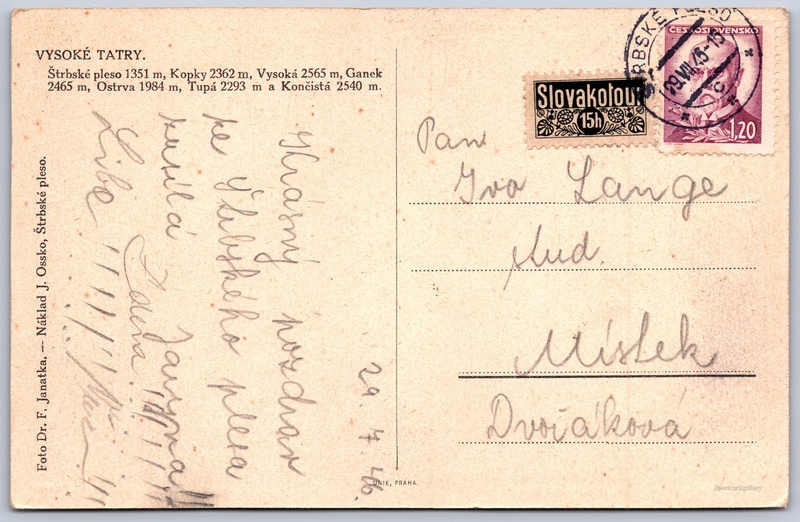 VYSOKÉ TATRY.
Štrbské pleso 1351 m, Kopky 2362 m, Vysoká 2565 m, Ganek
2465 m, Ostrva 1984 m, Tupá 2293 m a Končistá 2540 m.
Foto Dr. F. Janatka. — Náklad J. Ossko, Štrbské pleso.
Krásný pozdrav
ze Štrbského plesa
zasílá
29. 7. 46.
UNIE, PRAHA.
Slovakotour
15h
ČESKOSLOVENSKO
1,20
ŠTRBSKÉ PLESO
Pan
Ivo Lange
stud.
Místek
Dvořákova